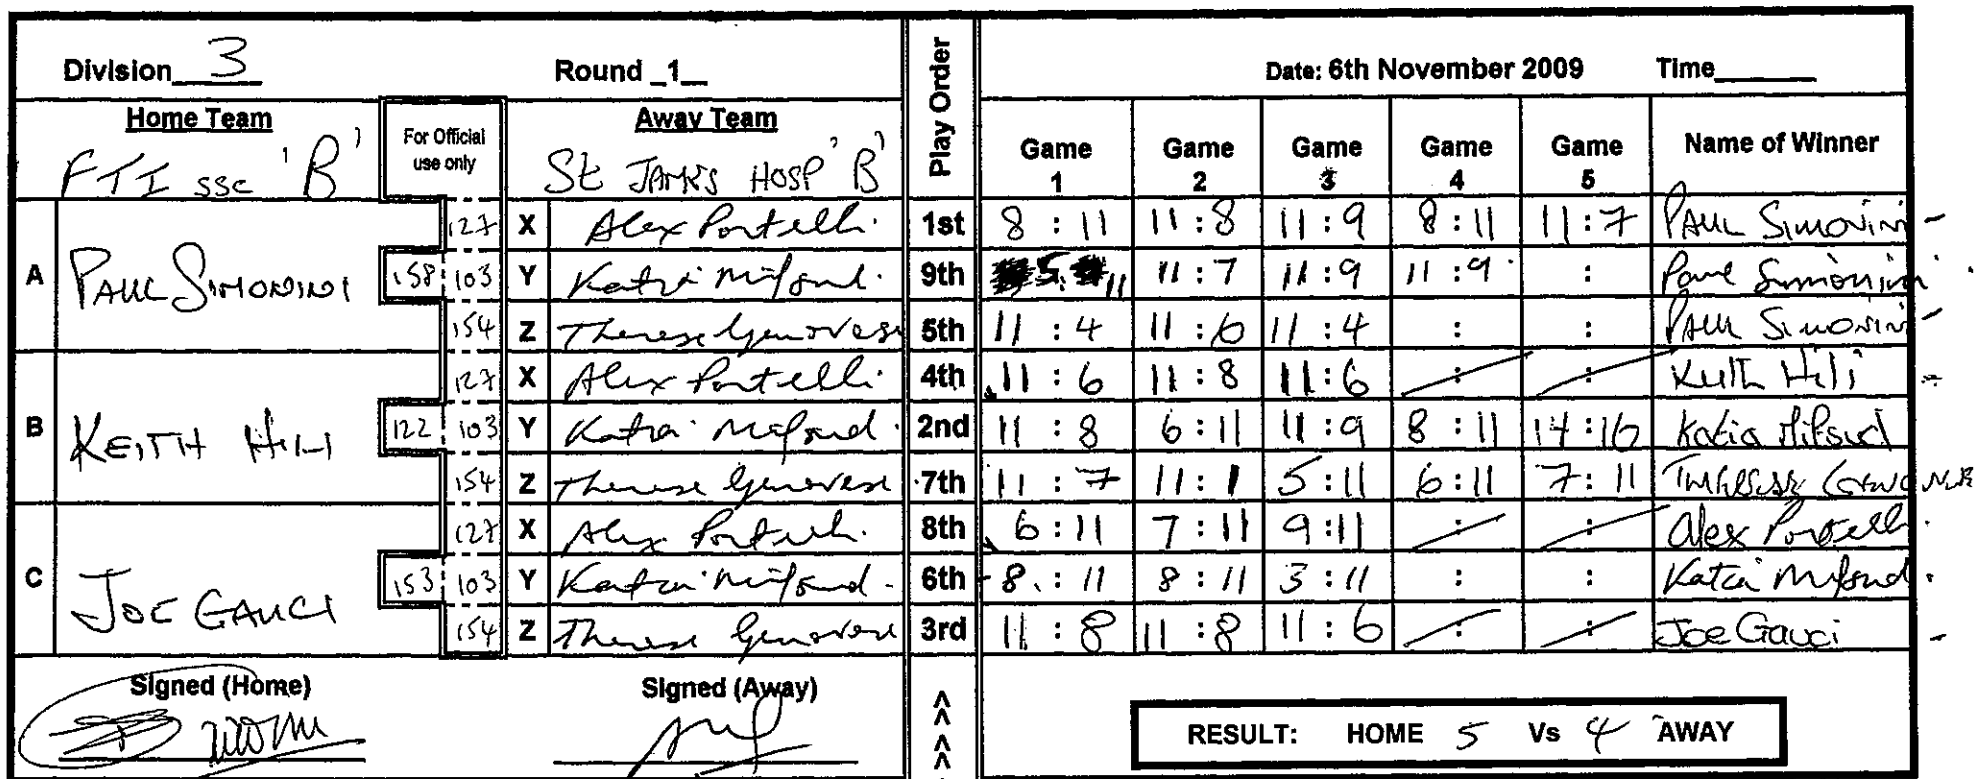 Division 3 Round _1_ Play Order Date: 6th November 2009 Time
Home Team For Official use only Away Team Game 1 Game 2 Game 3 Game 4 Game 5 Name of Winner
FTI SSC 'B' St JAMES HOSP 'B'
A PAUL SIMONINI 158
127 X Alex Portelli. 1st 8 : 11 11 : 8 11 : 9 8 : 11 11 : 7 PAUL SIMONINI -
103 Y Katia Mifsud. 9th 5 : 11 11 : 7 11 : 9 11 : 9 : Paul Simonini
154 Z Therese Genovese 5th 11 : 4 11 : 6 11 : 4 : : PAUL SIMONINI -
B KEITH HILI 122
127 X Alex Portelli. 4th 11 : 6 11 : 8 11 : 6 : : Keith Hili -
103 Y Katia Mifsud. 2nd 11 : 8 6 : 11 11 : 9 8 : 11 14 : 16 Katia Mifsud
154 Z Therese Genovese 7th 11 : 7 11 : 1 5 : 11 6 : 11 7 : 11
C JOE GAUCI 153
127 X Alex Portelli. 8th 6 : 11 7 : 11 9 : 11 : : Alex Portelli.
103 Y Katia Mifsud. 6th 8 : 11 8 : 11 3 : 11 : : Katia Mifsud.
154 Z Therese Genovese 3rd 11 : 8 11 : 8 11 : 6 : : Joe Gauci -
Signed (Home) Signed (Away) RESULT: HOME 5 Vs 4 AWAY